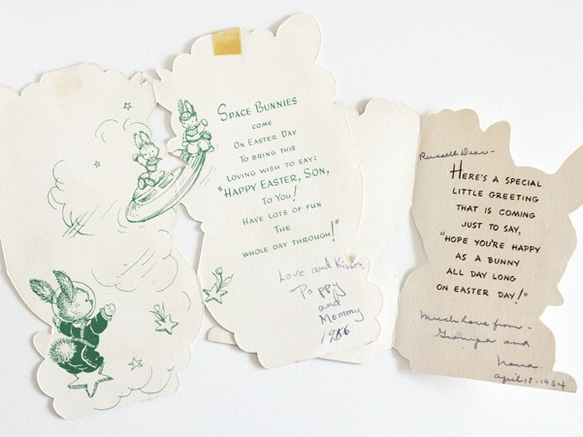 SPACE BUNNIES
COME
ON EASTER DAY
TO BRING THIS
LOVING WISH TO SAY:
"HAPPY EASTER, SON,
TO YOU!
HAVE LOTS OF FUN
THE
WHOLE DAY THROUGH!"
Love and Kisses,
Poppy
and
Mommy
1956
Russell Dear-
HERE'S A SPECIAL
LITTLE GREETING
THAT IS COMING
JUST TO SAY,
"HOPE YOU'RE HAPPY
AS A BUNNY
ALL DAY LONG
ON EASTER DAY!"
Much love from-
Grampa and
Nana.
April 18-1954